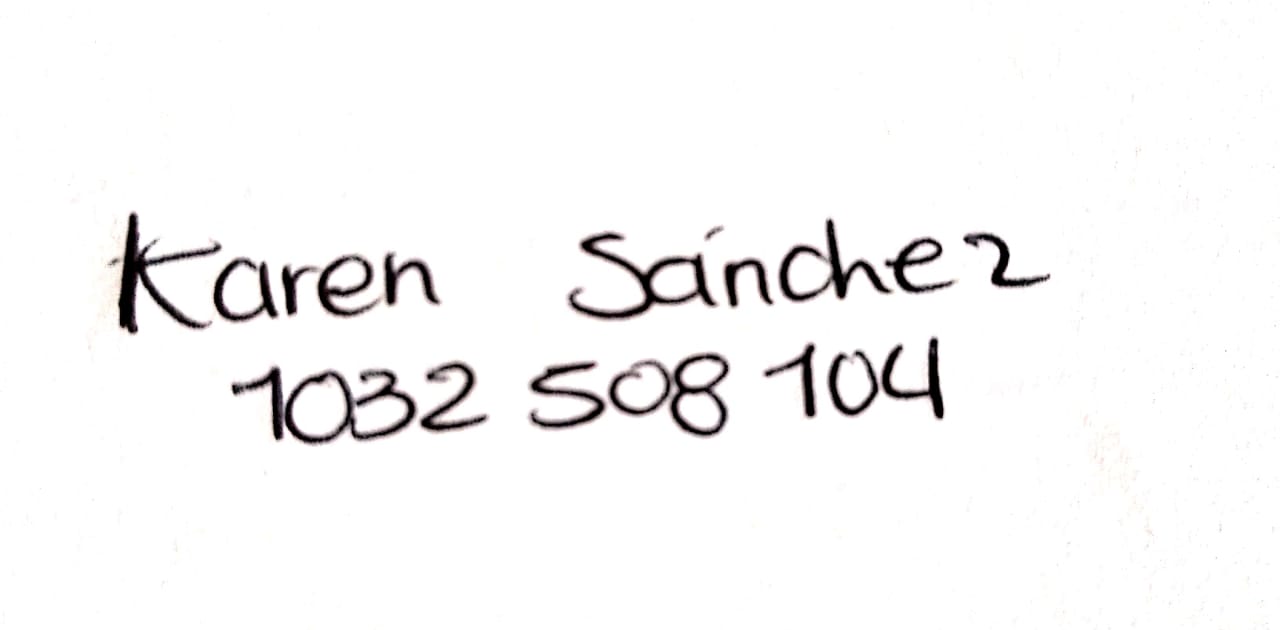 Karen Sánchez
1032 508 104